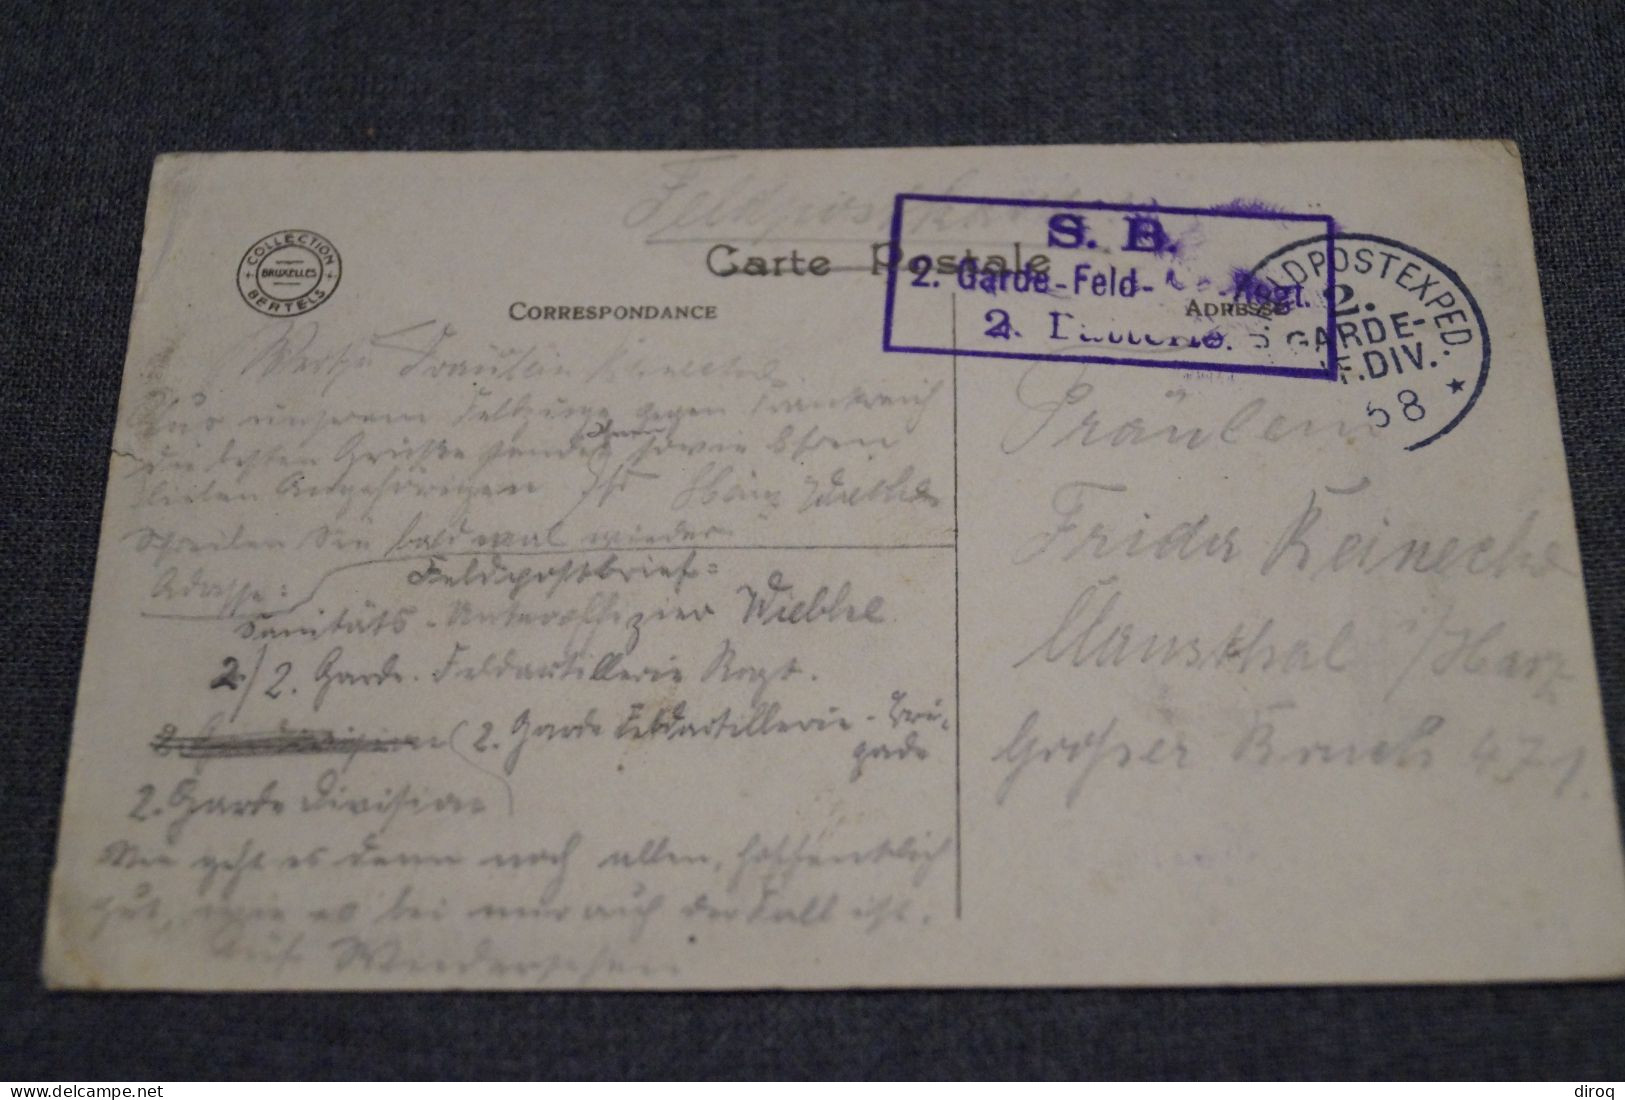 Feldpostkarte
Carte Postale
COLLECTION
BRUXELLES
BERTELS
CORRESPONDANCE
ADRESSE
S. B.
2. Garde-Feld- Regt.
2. Batterie.
FELDPOSTEXPED.
2.
GARDE-
DIV.
8
Fräulein
Aus unserem Feldzuge gegen Frankreich
die besten Grüße sendet Ihnen sowie Ihren
lieben Angehörigen Ihr Wiebke
Schreiben Sie bald mal wieder
Adresse: Feldpostbrief:
Sanitäts-Unteroffizier Wiebke
2./2. Garde-Feldartillerie Regt.
(2. Garde Feldartillerie-Bri-
gade
2. Garde Division
Wie geht es denn noch allen, hoffentlich
gut, wie es bei mir auch der Fall ist.
Auf Wiedersehen
Fräulein
Frida Reinecke
Clausthal i/Harz
Großer Bruch 471.
diroq